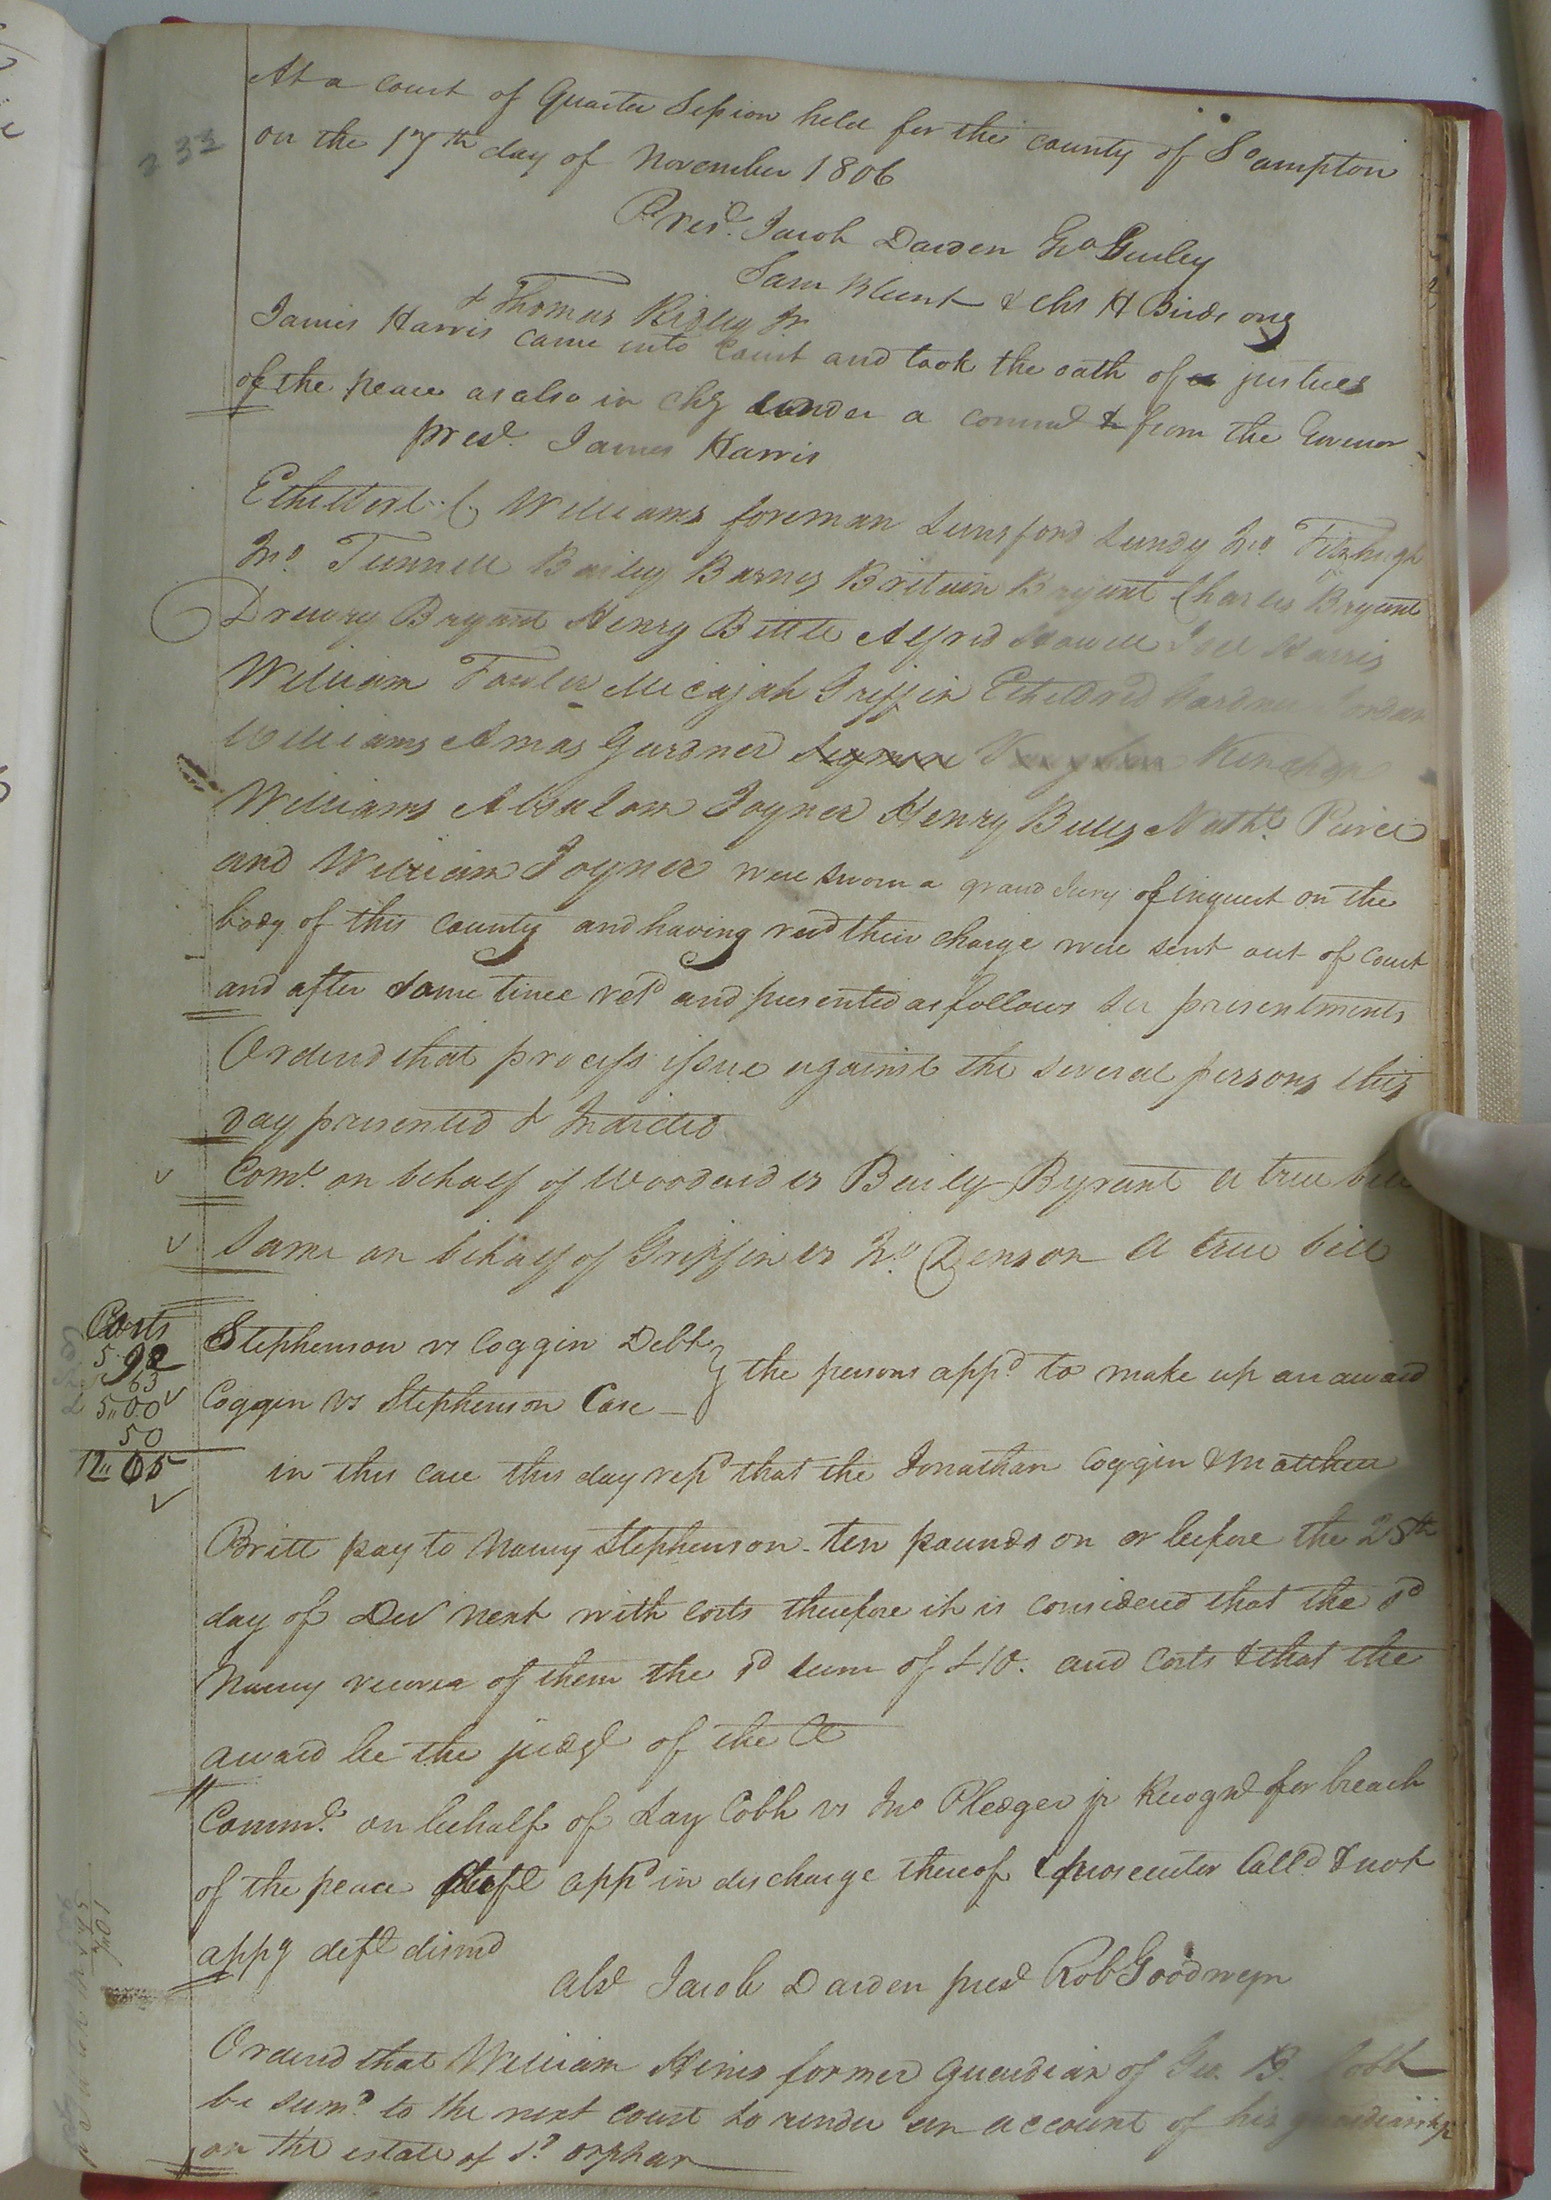 233
At a court of Quarter Session held for the county of So ampton
on the 17th day of November 1806
Presd. Jacob Darden Geo Gurley
Sam Blunt & Chs H Birdsong
& Thomas Ridley Jr
James Harris came into Court and took the oath of a justices
of the peace as also in Chy under a commd from the Govenor
presd. James Harris
Etheldred C. Williams foreman Lunsford Lundy Jno Fitzhugh
Jno. Tunnell Bailey Barnes Britain Bryant Charles Bryant
Drewry Bryant Henry Bittle Alfrid Howell Joel Harris
William Fowler Micajah Griffin Etheldred Gardner Jordan
Williams Amos Gardner Kinchen
Williams Absalom Joyner Henry Bulls Nathl. Peirce
and William Joyner were sworn a grand Jury of inquest on the
body of this county and having recd their charge were sent out of court
and after some time retd and presented as follows See presentments
Ordered that process issue against the several persons this
day presented & Indicted
Comth on behalf of Woodard vs Baily Byrant a true bill
Same on behalf of Griffin vs Jno Denson a true bill
Costs
5.92
63
5"00
50
12"05
Stephenson vs Coggin Debt
Coggin vs Stephenson Case
the persons appd to make up an award
in this case this day repd that the Jonathan Coggin & Matthew
Britt pay to Nancy Stephenson ten pounds on or before the 25th
day of Decr next with costs therefore it is considered that the sd
Nancy recover of them the sd sum of £10. and costs & that the
award be the judgt of the Ct
Commth. on behalf of Lay Cobb vs Jno Pledger jr Recogne for breach
of the peace deft appd in discharge thereof & prosecutor Calld & not
appg deft dismd
Abst Jacob Darden prest Rob Goodwyn
Ordered that William Hines former guardian of Geo. B. Cobb
be sumd. to the next court to render an account of his guardianship
on the estate of sd. orphan